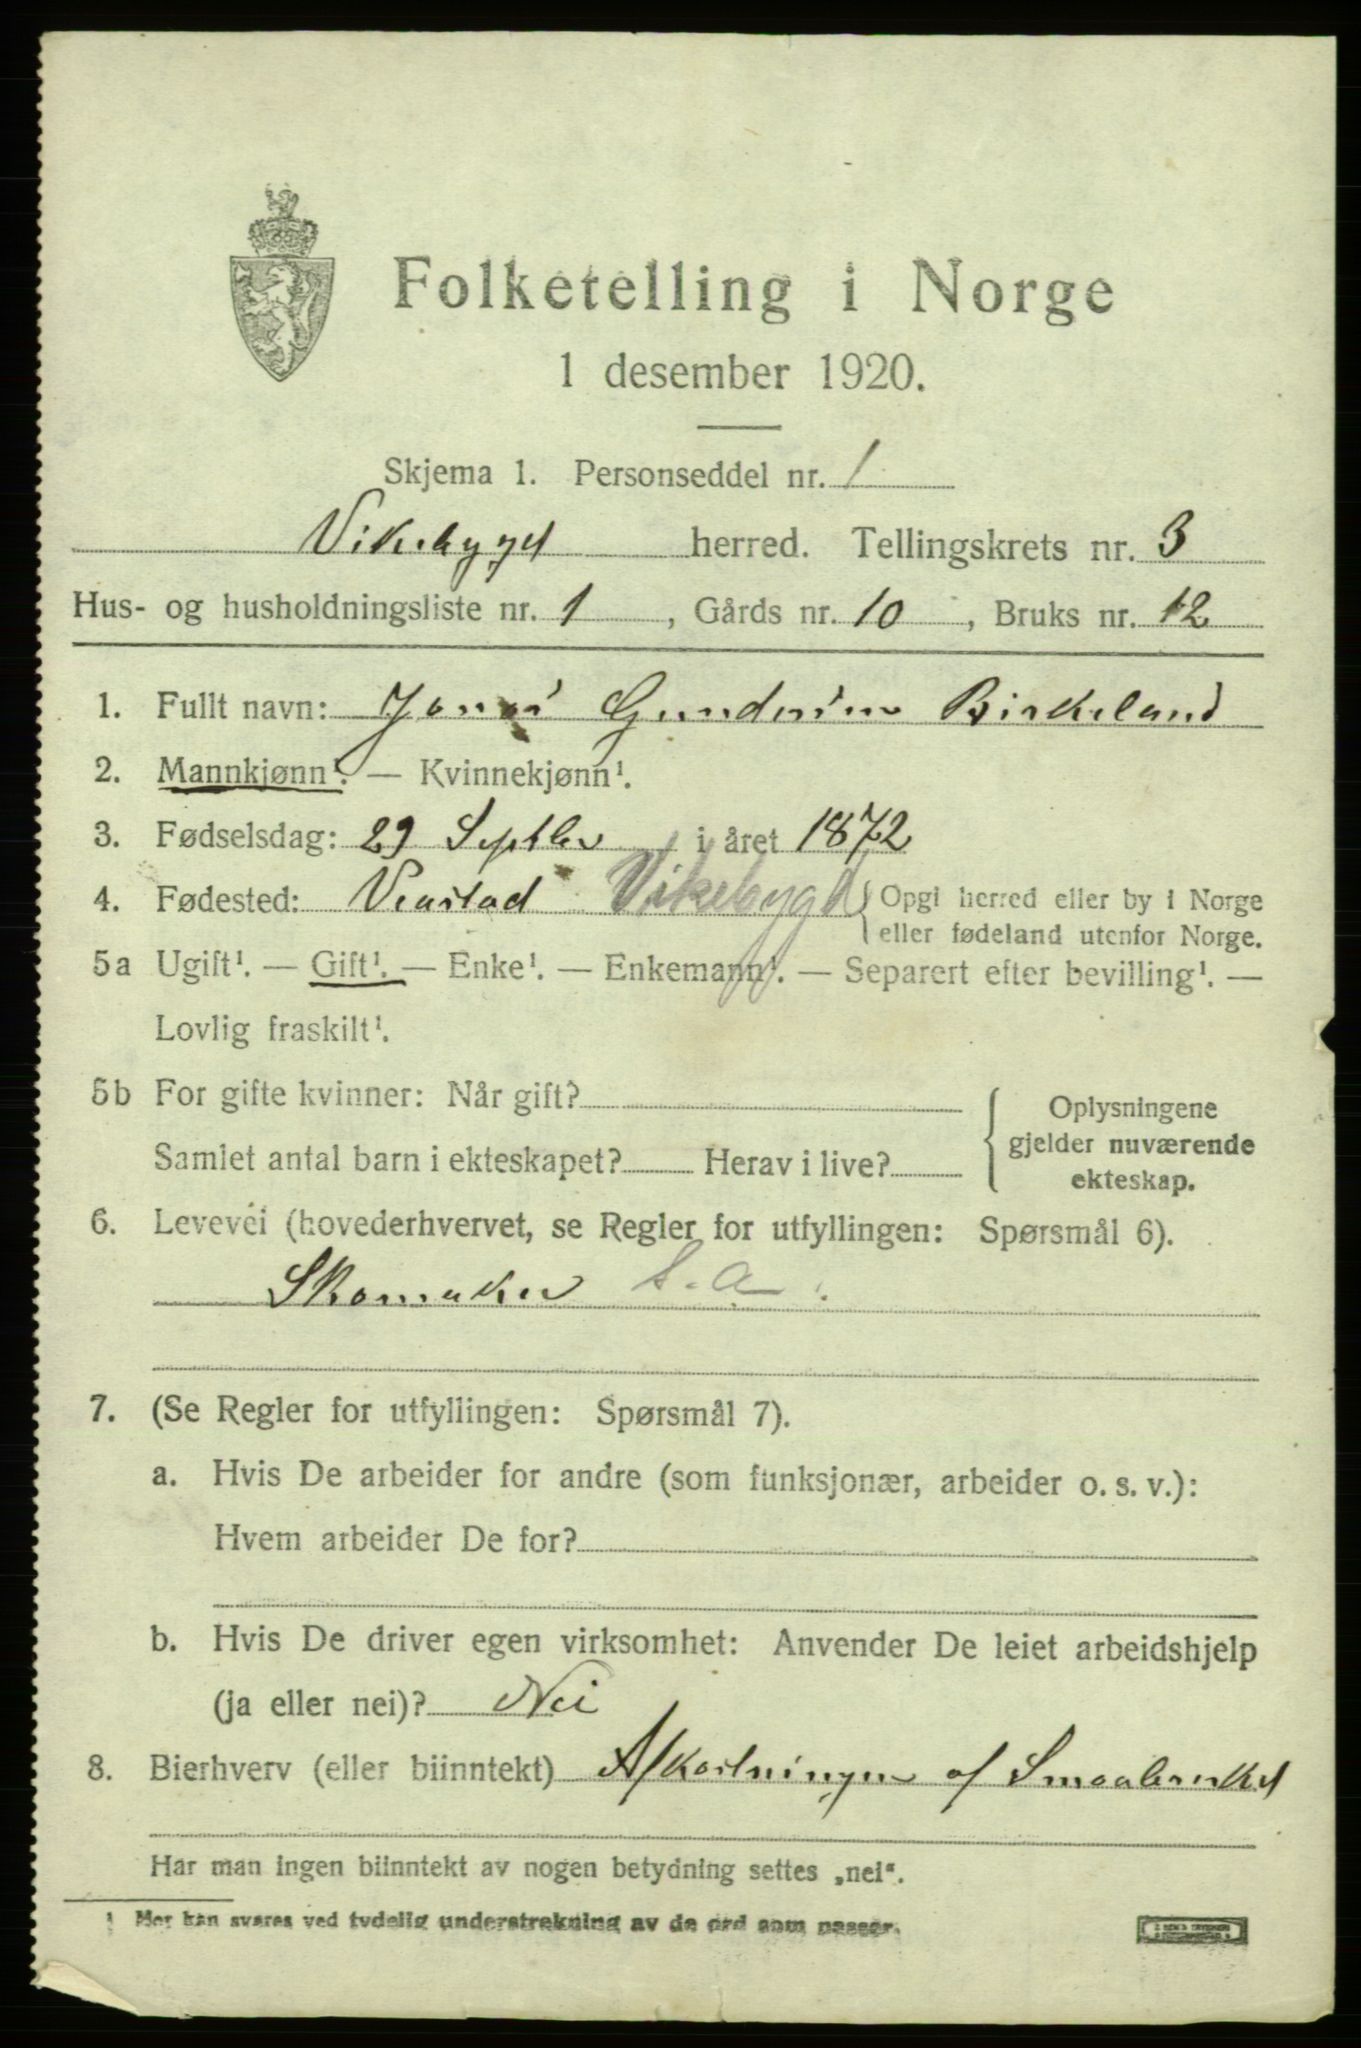 Folketelling i Norge
1 desember 1920.
Skjema 1. Personseddel nr. 1
Vikebygd herred. Tellingskrets nr. 3
Hus- og husholdningsliste nr. 1, Gårds nr. 10, Bruks nr. 12
1. Fullt navn: Jonas Gundersen Birkeland
2. Mannkjønn¹. — Kvinnekjønn¹.
3. Fødselsdag: 29 Septbr i året 1872
4. Fødested: Vikebygd Opgi herred eller by i Norge
eller fødeland utenfor Norge.
5a Ugift¹. — Gift¹. — Enke¹. — Enkemann¹. — Separert efter bevilling¹. —
Lovlig fraskilt¹.
5b For gifte kvinner: Når gift?
Samlet antal barn i ekteskapet? Herav i live?
Oplysningene
gjelder nuværende
ekteskap.
6. Levevei (hovederhvervet, se Regler for utfyllingen: Spørsmål 6).
Skomaker s.a.
7. (Se Regler for utfyllingen: Spørsmål 7).
a. Hvis De arbeider for andre (som funksjonær, arbeider o. s. v.):
Hvem arbeider De for?
b. Hvis De driver egen virksomhet: Anvender De leiet arbeidshjelp
(ja eller nei)? Nei
8. Bierhverv (eller biinntekt) Afkastningen af Smaabruket
Har man ingen biinntekt av nogen betydning settes „nei“.
¹ Mer kan svares ved tydelig understrekning av de ord som passer.